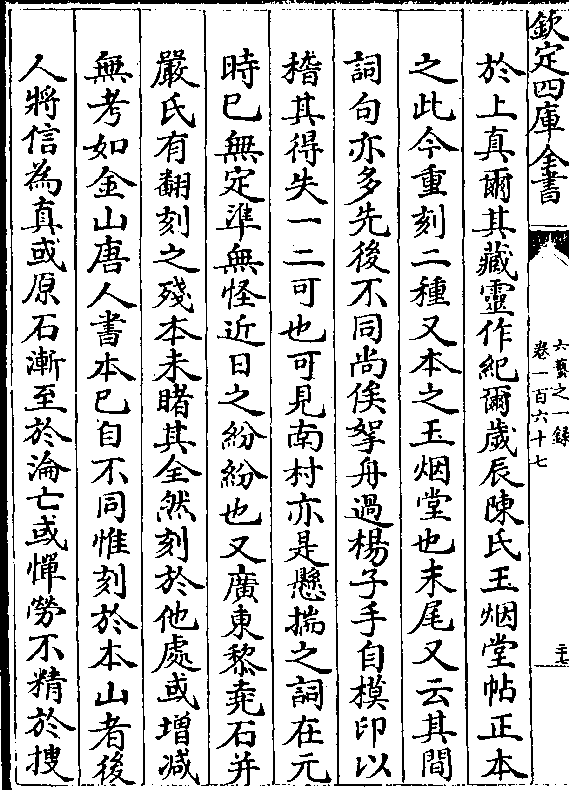 欽定四庫全書
六藝之一録
卷一百六十七
二十七
於上真爾其藏靈作紀爾歲辰陳氏玉烟堂帖正本
之此今重刻二種又本之玉烟堂也末尾又云其間
詞句亦多先後不同尚俟拏舟過楊子手自模印以
稽其得失一二可也可見南村亦是懸揣之詞在元
時已無定準無怪近日之紛紛也又廣東黎堯石并
嚴氏有翻刻之殘本未睹其全然刻於他處或増减
無考如金山唐人書本已自不同惟刻於本山者後
人將信為真或原石漸至於淪亡或憚勞不精於搜